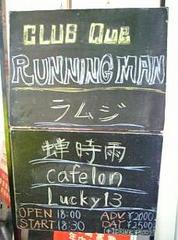 CLUB Que
RUNNING MAN
ラムジ
蝉時雨
Cafelon
Lucky13
OPEN 18:00 ADV ¥2000
START 18:30 DAY ¥2500